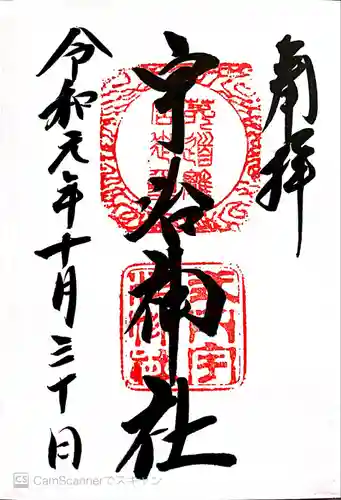 奉拝
宇治神社
令和元年十月三十日
CS CamScannerでスキャン